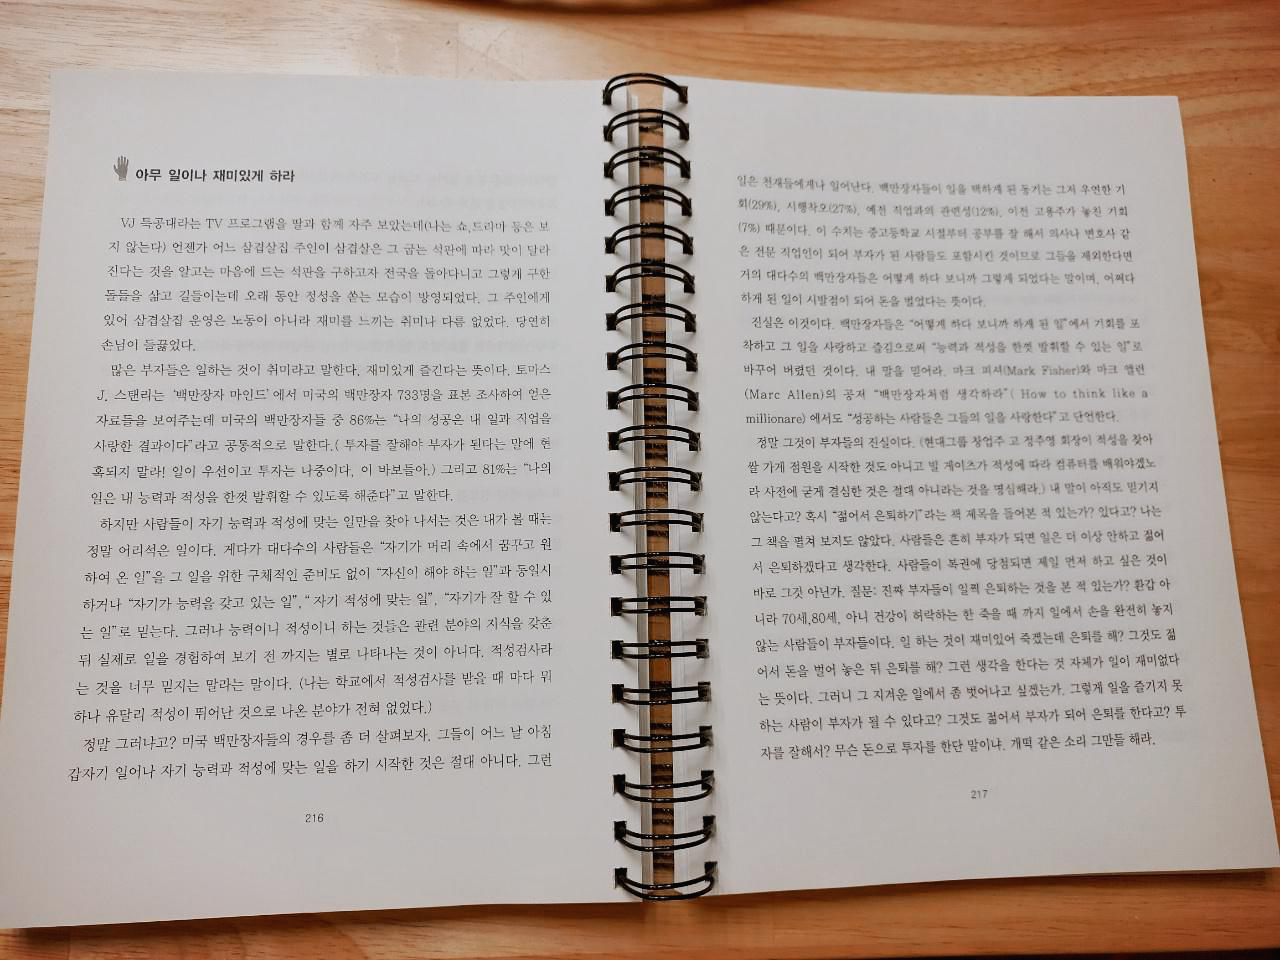 아무 일이나 재미있게 하라
VJ 특공대라는 TV 프로그램을 딸과 함께 자주 보았는데(나는 쇼,드라마 등은 보
지 않는다) 언젠가 어느 삼겹살집 주인이 삼겹살은 그 굽는 석판에 따라 맛이 달라
진다는 것을 알고는 마음에 드는 석판을 구하고자 전국을 돌아다니고 그렇게 구한
돌들을 삶고 길들이는데 오래 동안 정성을 쏟는 모습이 방영되었다. 그 주인에게
있어 삼겹살집 운영은 노동이 아니라 재미를 느끼는 취미나 다름 없었다. 당연히
손님이 들끓었다.
많은 부자들은 일하는 것이 취미라고 말한다. 재미있게 즐긴다는 뜻이다. 토마스
J. 스탠리는 '백만장자 마인드' 에서 미국의 백만장자 733명을 표본 조사하여 얻은
자료들을 보여주는데 미국의 백만장자들 중 86%는 “나의 성공은 내 일과 직업을
사랑한 결과이다”라고 공통적으로 말한다.( 투자를 잘해야 부자가 된다는 말에 현
혹되지 말라! 일이 우선이고 투자는 나중이다, 이 바보들아.) 그리고 81%는 “나의
일은 내 능력과 적성을 한껏 발휘할 수 있도록 해준다”고 말한다.
하지만 사람들이 자기 능력과 적성에 맞는 일만을 찾아 나서는 것은 내가 볼 때는
정말 어리석은 일이다. 게다가 대다수의 사람들은 “자기가 머리 속에서 꿈꾸고 원
하여 온 일”을 그 일을 위한 구체적인 준비도 없이 “자신이 해야 하는 일”과 동일시
하거나 “자기가 능력을 갖고 있는 일”, “ 자기 적성에 맞는 일”, “자기가 잘 할 수 있
는 일”로 믿는다. 그러나 능력이니 적성이니 하는 것들은 관련 분야의 지식을 갖춘
뒤 실제로 일을 경험하여 보기 전 까지는 별로 나타나는 것이 아니다. 적성검사라
는 것을 너무 믿지는 말라는 말이다. (나는 학교에서 적성검사를 받을 때 마다 뭐
하나 유달리 적성이 뛰어난 것으로 나온 분야가 전혀 없었다.)
정말 그러냐고? 미국 백만장자들의 경우를 좀 더 살펴보자. 그들이 어느 날 아침
갑자기 일어나 자기 능력과 적성에 맞는 일을 하기 시작한 것은 절대 아니다. 그런
216
일은 천재들에게나 일어난다. 백만장자들이 일을 택하게 된 동기는 그저 우연한 기
회(29%), 시행착오(27%), 예전 직업과의 관련성(12%), 이전 고용주가 놓친 기회
(7%) 때문이다. 이 수치는 중고등학교 시절부터 공부를 잘 해서 의사나 변호사 같
은 전문 직업인이 되어 부자가 된 사람들도 포함시킨 것이므로 그들을 제외한다면
거의 대다수의 백만장자들은 어떻게 하다 보니까 그렇게 되었다는 말이며, 어쩌다
하게 된 일이 시발점이 되어 돈을 벌었다는 뜻이다.
진실은 이것이다. 백만장자들은 “어떻게 하다 보니까 하게 된 일”에서 기회를 포
착하고 그 일을 사랑하고 즐김으로써 “능력과 적성을 한껏 발휘할 수 있는 일”로
바꾸어 버렸던 것이다. 내 말을 믿어라. 마크 피셔(Mark Fisher)와 마크 앨런
(Marc Allen)의 공저 “백만장자처럼 생각하라”( How to think like a
millionare) 에서도 “성공하는 사람들은 그들의 일을 사랑한다”고 단언한다.
정말 그것이 부자들의 진실이다. (현대그룹 창업주 고 정주영 회장이 적성을 찾아
쌀 가게 점원을 시작한 것도 아니고 빌 게이츠가 적성에 따라 컴퓨터를 배워야겠노
라 사전에 굳게 결심한 것은 절대 아니라는 것을 명심해라.) 내 말이 아직도 믿기지
않는다고? 혹시 “젊어서 은퇴하기”라는 책 제목을 들어본 적 있는가? 있다고? 나는
그 책을 펼쳐 보지도 않았다. 사람들은 흔히 부자가 되면 일은 더 이상 안하고 젊어
서 은퇴하겠다고 생각한다. 사람들이 복권에 당첨되면 제일 먼저 하고 싶은 것이
바로 그것 아닌가. 질문: 진짜 부자들이 일찍 은퇴하는 것을 본 적 있는가? 환갑 아
니라 70세,80세, 아니 건강이 허락하는 한 죽을 때 까지 일에서 손을 완전히 놓지
않는 사람들이 부자들이다. 일 하는 것이 재미있어 죽겠는데 은퇴를 해? 그것도 젊
어서 돈을 벌어 놓은 뒤 은퇴를 해? 그런 생각을 한다는 것 자체가 일이 재미없다
는 뜻이다. 그러니 그 지겨운 일에서 좀 벗어나고 싶겠는가. 그렇게 일을 즐기지 못
하는 사람이 부자가 될 수 있다고? 그것도 젊어서 부자가 되어 은퇴를 한다고? 투
자를 잘해서? 무슨 돈으로 투자를 한단 말이냐. 개떡 같은 소리 그만들 해라.
217